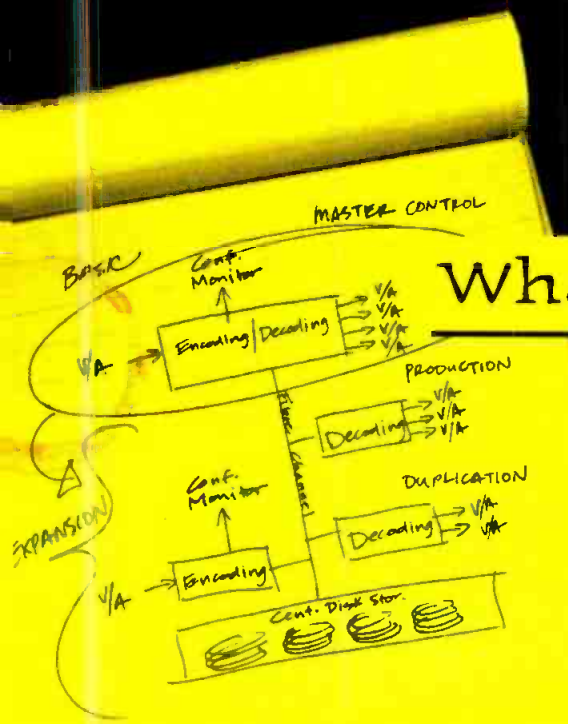 MASTER CONTROL
BASIC
Conf.
Monitor
V/A
Encoding/Decoding
V/A
V/A
V/A
V/A
Wha
PRODUCTION
Fibre Channel
Decoding
V/A
V/A
V/A
EXPANSION
Conf.
Monitor
DUPLICATION
Decoding
V/A
V/A
V/A
Encoding
Cent. Disk Stor.